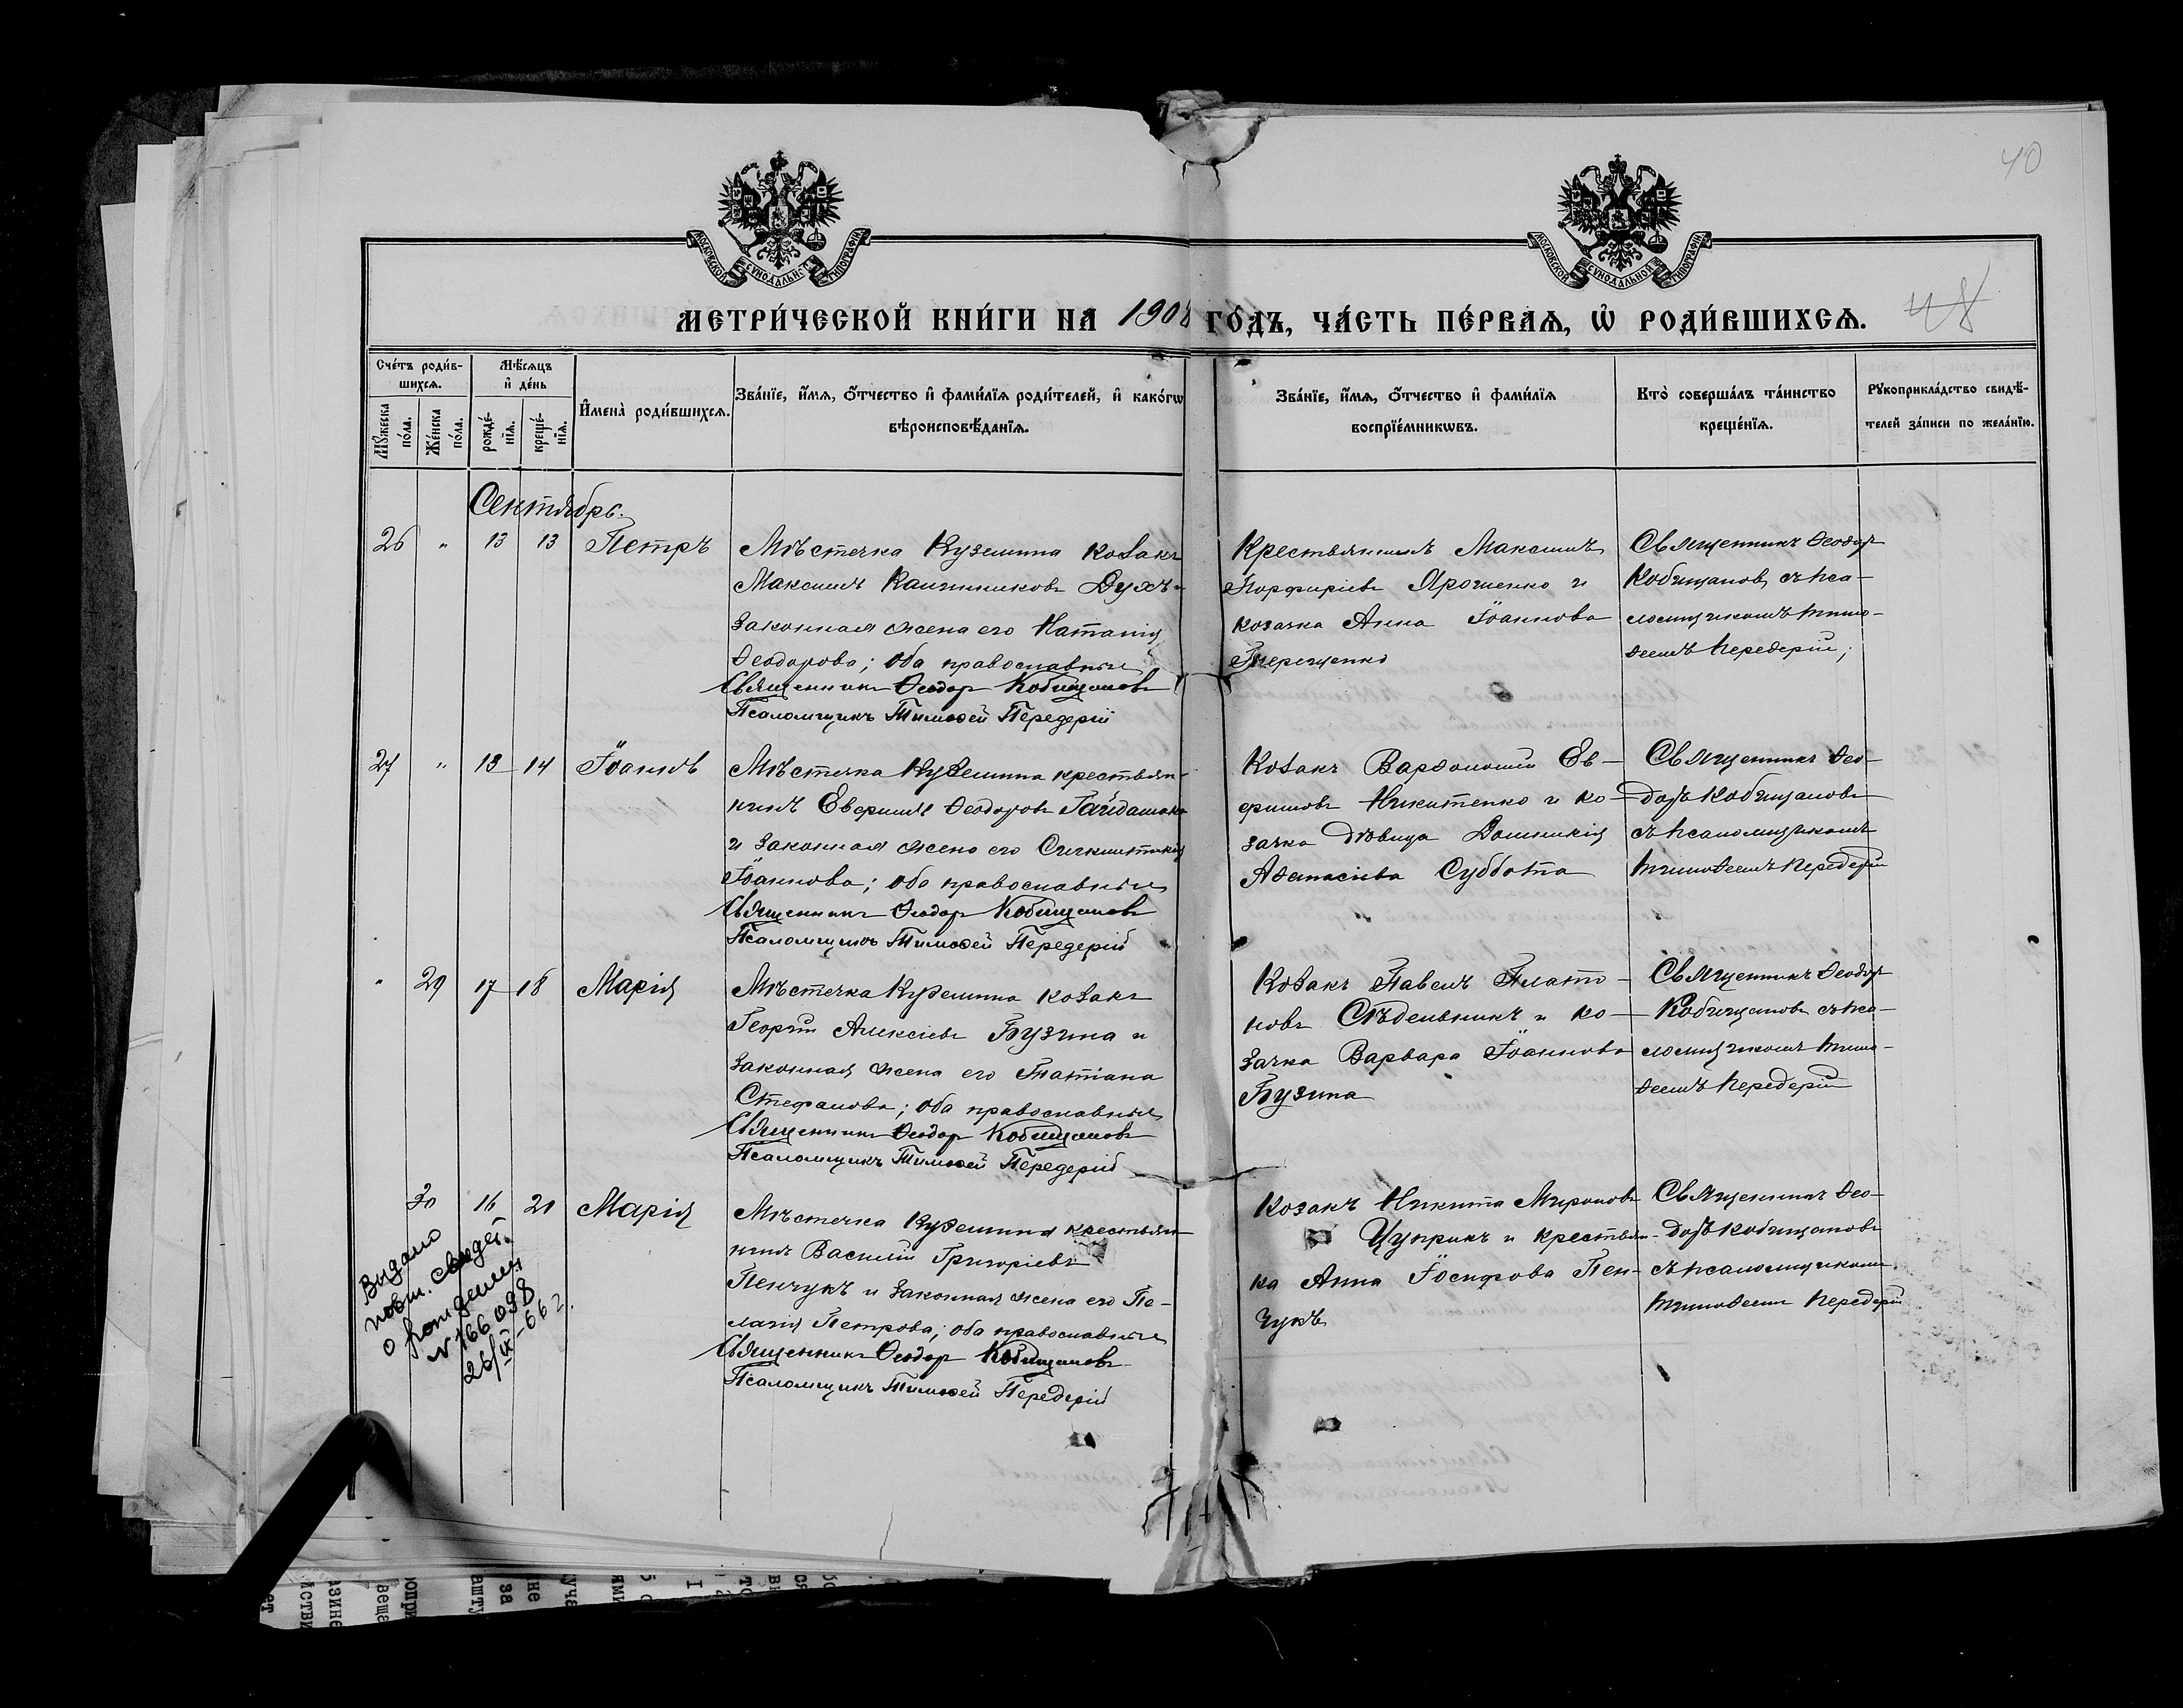 40
МОСКОВСКОЙ СѴНОДАЛЬНОЙ ТИПОГРАФІИ
МОСКОВСКОЙ СѴНОДАЛЬНОЙ ТИПОГРАФІИ
МЕТРИ́ЧЕСКОЙ КНИ́ГИ НА 1908 ГО́ДЪ, ЧА́СТЬ ПЕ́РВАѦ, Ѡ РОДИ́ВШИХСѦ.
48
Сче́тъ роди́в-
шихсѧ.
Мѣ́сѧцъ
и҆ де́нь
Мꙋ́жеска
по́ла.
Же́нска
по́ла.
рожде́-
нїѧ.
креще́-
нїѧ.
И҆мена̀ роди́вшихсѧ.
Зва́нїе, и҆́мѧ, ѻ҆́тчество и҆ фами́лїѧ роди́телей, и҆ како́гѡ
вѣроисповѣ́данїѧ.
Зва́нїе, и҆́мѧ, ѻ҆́тчество и҆ фами́лїѧ
воспрїе́мникѡвъ.
Кто̀ соверша́лъ та́инство
креще́нїѧ.
Рꙋкоприкла́дство свидѣ́-
телей за́писи по жела́нїю.
Сентябрь.
26 " 13 13 Петръ
Мѣстечка Куземина козакъ
Максимъ Калинниковъ
законная жена его Наталія
Ѳеодорова; оба православные
Священникъ Ѳеодоръ Кобищановъ
Псаломщикъ Тимоѳей Передерій
Крестьянинъ Максимъ
Порфиріевъ Ярошенко и
козачка Анна Іоаннова
Терещенко
Священникъ Ѳеодоръ
Кобищановъ съ пса-
ломщикомъ Тимо-
ѳеемъ Передерій;
27 " 13 14 Іоаннъ
Мѣстечка Куземина крестьян-
нинъ Евфимій Ѳеодоровъ Гайдамака
и законная жена его
Іоаннова; оба православные
Священникъ Ѳеодоръ Кобищановъ
Псаломщикъ Тимоѳей Передерій
Козакъ Варѳоломей Ев-
фимовъ Никитенко и ко-
зачка дѣвица Домникія
Аѳанасіева Суббота
Священникъ Ѳео-
доръ Кобищановъ
съ псаломщикомъ
Тимоѳеемъ Передерій
" 29 17 18 Марія
Мѣстечка Куземина козакъ
Георгій Алексіевъ Бузина и
законная жена его Татіана
Стефанова; оба православные
Священникъ Ѳеодоръ Кобищановъ
Псаломщикъ Тимоѳей Передерій
Козакъ Павелъ Плато-
новъ Слѣдевникъ и ко-
зачка Варвара Іоаннова
Бузина
Священникъ Ѳеодоръ
Кобищановъ съ пса-
ломщикомъ Тимо-
ѳеемъ Передерій
30 16 21 Марія
Мѣстечка Куземина крестьян-
нинъ Василій Григоріевъ
Пенчукъ и законная жена его Пе-
лагія Петрова; оба православные
Священникъ Ѳеодоръ Кобищановъ
Псаломщикъ Тимоѳей Передерій
Козакъ Никита Мироновъ
Цуприкъ и крестьян-
ка Анна Іосифова Пен-
чукъ
Священникъ Ѳео-
доръ Кобищановъ
съ псаломщикомъ
Тимоѳеемъ Передерій
Видано
повт. свидет.
о рождении
№ 166098
26/IX-662.